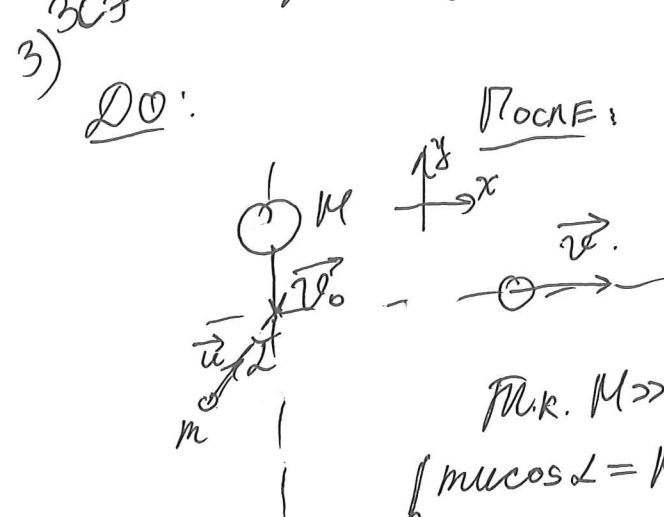 ЗСЭ
3)
До: После:
y
x
M
v⃗.
v⃗₀
u⃗
α
m
Т.к. M>>
{ mucosα = M